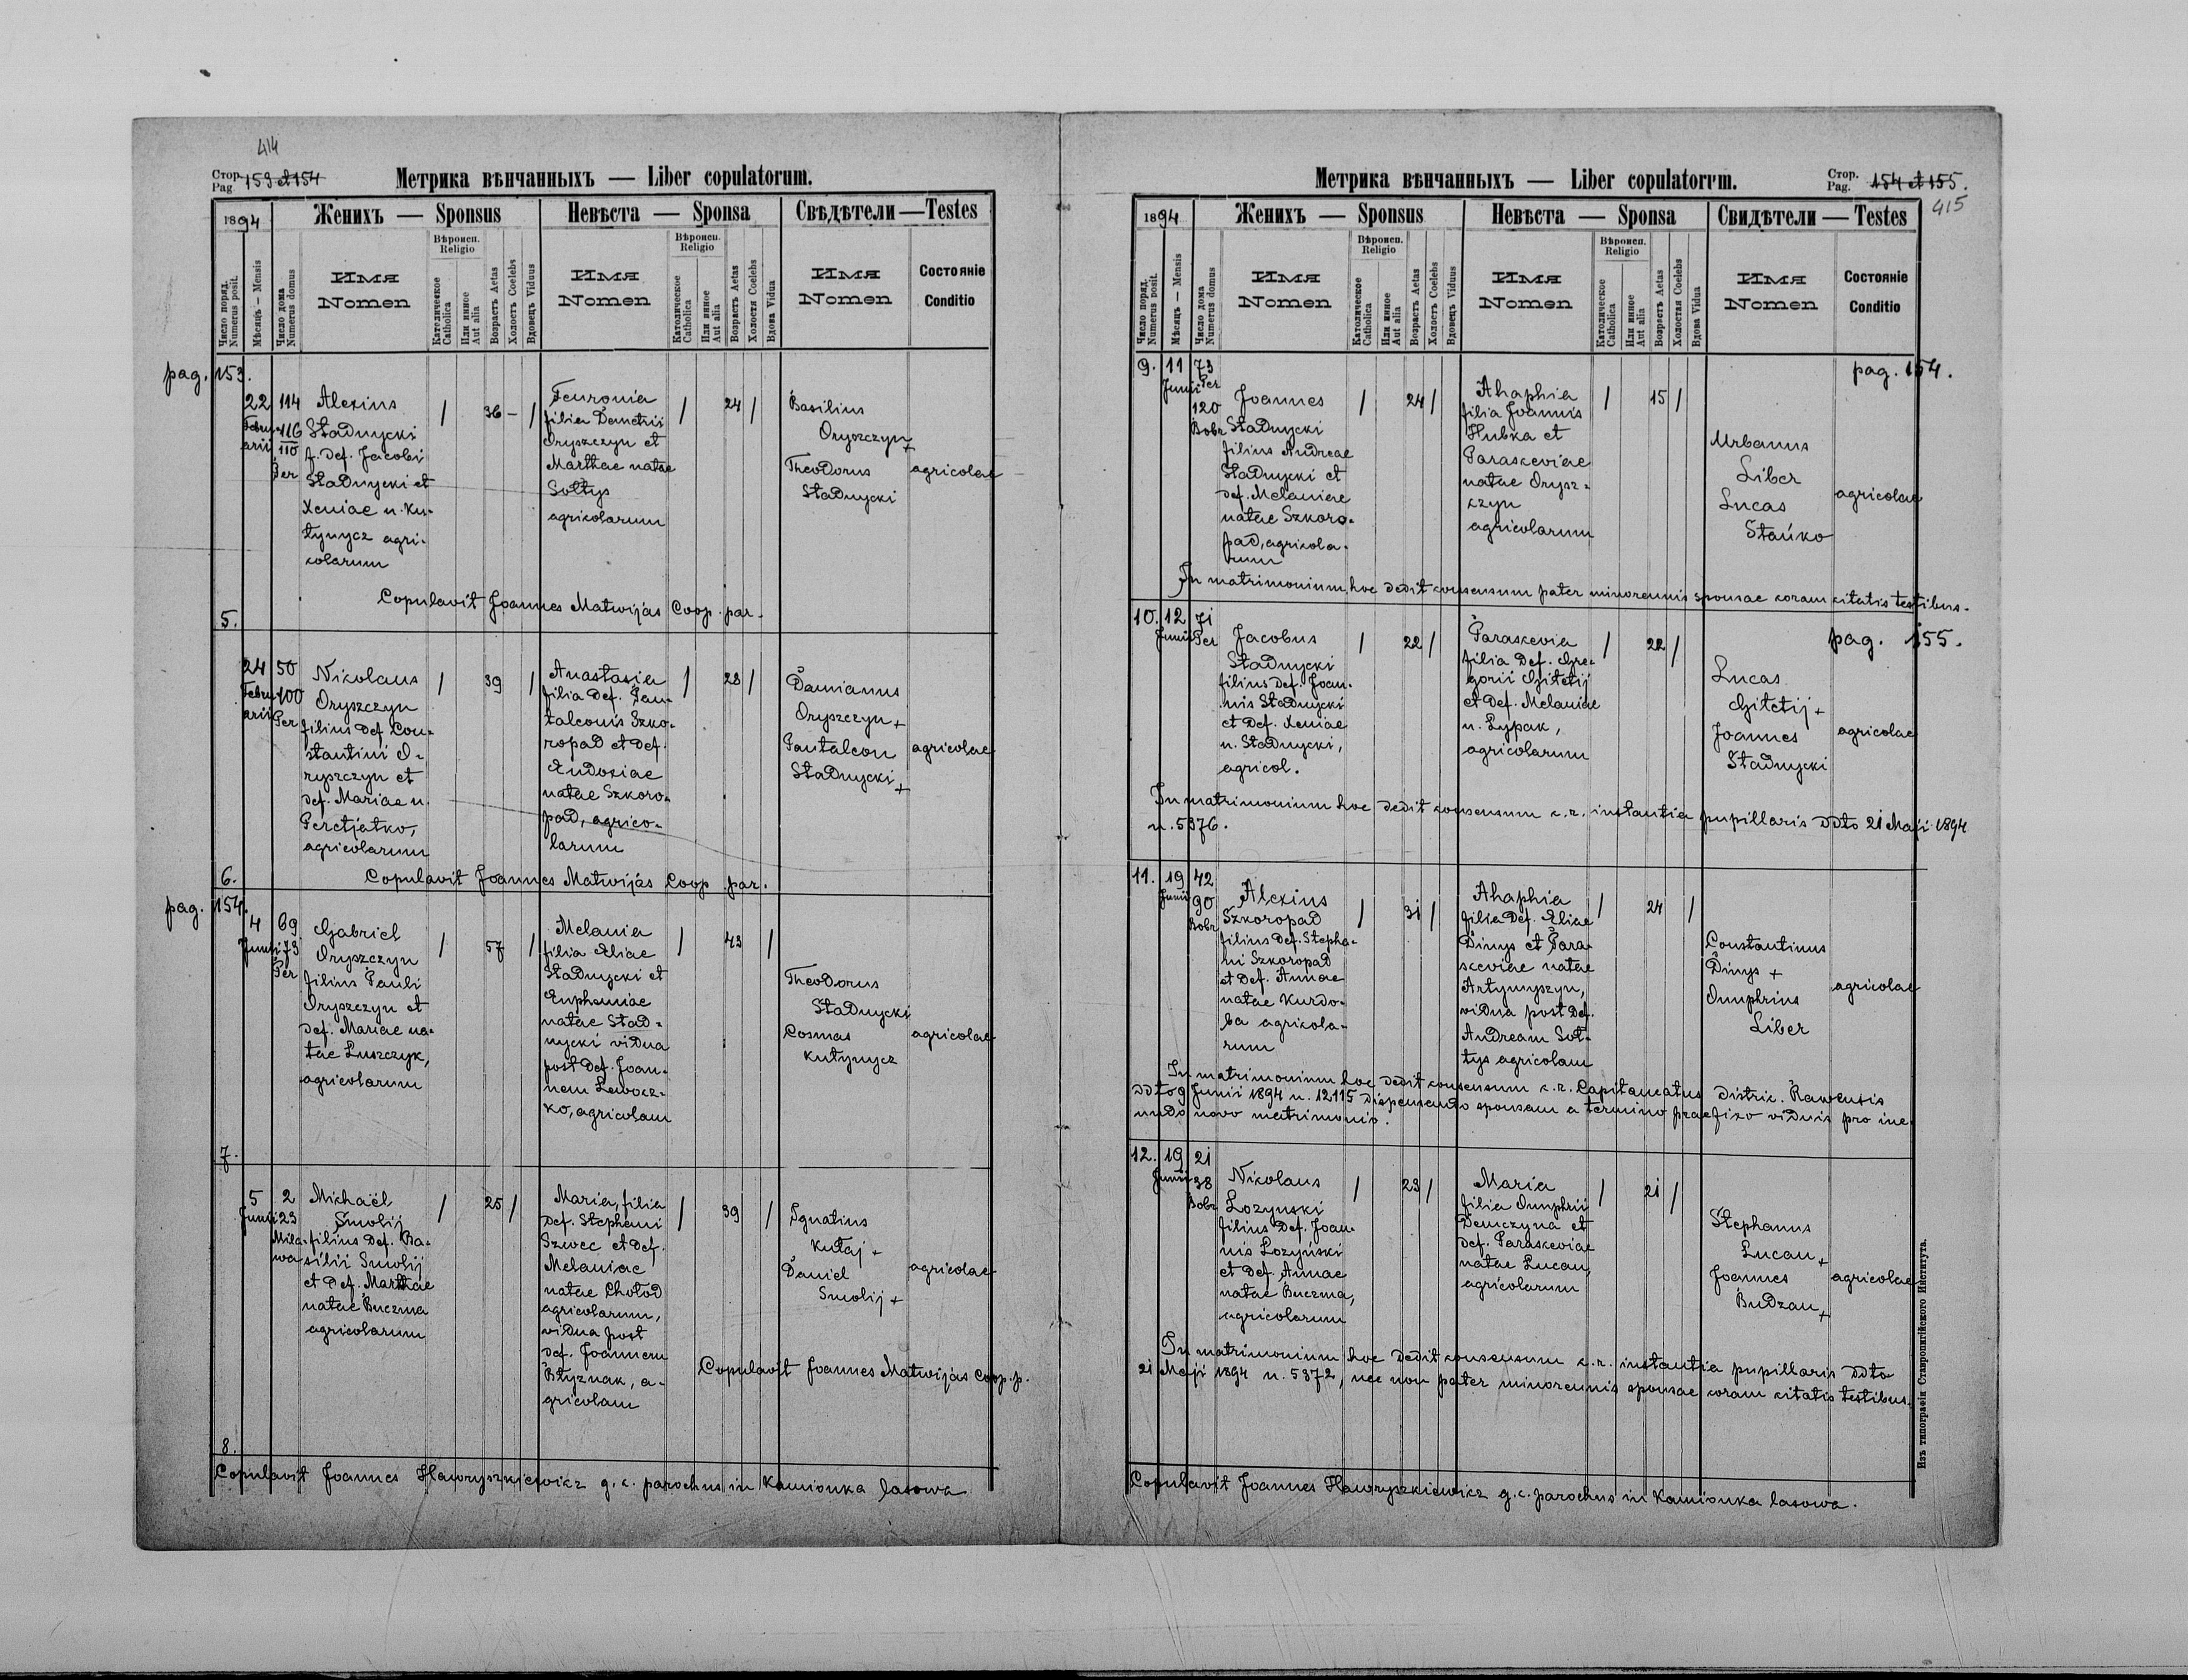 414
Стор. Pag. 153 et 154
Метрика вѣнчанныхъ — Liber copulatorum.
1894
Женихъ — Sponsus
Невѣста — Sponsa
Свѣдѣтели — Testes
Число поряд. Numerus posit.
Мѣсяцъ — Mensis
Число дома Numerus domus
Имя
Nomen
Вѣроисп. Religio
Католическое Catholica
Или инное Aut alia
Возрастъ Aetas
Холостъ Coelebs
Вдовецъ Viduus
Имя
Nomen
Вѣроисп. Religio
Католическое Catholica
Или инное Aut alia
Возрастъ Aetas
Холостая Coelebs
Вдова Vidua
Имя
Nomen
Состояніе
Conditio
pag. 153.
5.
22 Februarii
114
116
III
110
Per
Alexius
Stadnycki
f. def. Jacobi
Stadnycki et
Xeniae n. Ku-
tynycz agri-
colarum
/ 36 – /
Feuronia
filia Demetrii
Oryszczyn et
Marthae natae
Sołtys
agricolarum
/ 24 /
Basilius
Oryszczyn +
Theodorus
Stadnycki
agricolae
Copulavit Joannes Matwijas Coop. par.
6.
24 Februarii
50
100
Per
Nikolaus
Oryszczyn
filius def. Con-
stantini O-
ryszczyn et
def. Mariae n.
Peretjatko,
agricolarum
/ 39 /
Anastasia
filia def. Pan-
taleonis Szko-
ropad et def.
Eudoxiae
natae Szkoro-
pad, agrico-
larum
/ 28 /
Damianus
Oryszczyn +
Pantaleon
Stadnycki +
agricolae
Copulavit Joannes Matwijas Coop. par.
pag. 154.
7.
4 Junii
69
73
Per
Gabriel
Oryszczyn
filius Pauli
Oryszczyn et
def. Mariae na-
tae Luszczyk,
agricolarum
/ 57 /
Melania
filia Eliae
Stadnycki et
Euphemiae
natae Stad-
nycki vidua
post def. Joan-
nem Lewocz-
ko, agricolam
/ 43 /
Theodorus
Stadnycki
Cosmas
Kutynycz
agricolae
8.
5 Junii
2
23
Mila-
wa
Michaël
Smolij
filius def. Ba-
silii Smolij
et def. Marthae
natae Buczma
agricolarum
/ 25 /
Maria, filia
def. Stephani
Szwec et def.
Melaniae
natae Chołod
agricolarum,
vidua post
def. Joannem
Błyznak, a-
gricolam
/ 39 /
Ignatius
Kułaj +
Daniel
Smolij +
agricolae
Copulavit Joannes Matwijas Coop. p.
Copulavit Joannes Hawryszkiewicz g. c. parochus in Kamionka lasowa
Метрика вѣнчанныхъ — Liber copulatorum.
Стор. Pag. 154 et 155.
415
1894
Женихъ — Sponsus
Невѣста — Sponsa
Свидѣтели — Testes
Число поряд. Numerus posit.
Мѣсяцъ — Mensis
Число дома Numerus domus
Имя
Nomen
Вѣроисп. Religio
Католическое Catholica
Или инное Aut alia
Возрастъ Aetas
Холостъ Coelebs
Вдовецъ Viduus
Имя
Nomen
Вѣроисп. Religio
Католическое Catholica
Или инное Aut alia
Возрастъ Aetas
Холостая Coelebs
Вдова Vidua
Имя
Nomen
Состояніе
Conditio
pag. 154.
9.
11 Junii
73
Per
120
Bobr
Joannes
Stadnycki
filius Andreae
Stadnycki et
def. Melaniae
natae Szkoro-
pad, agricola-
rum
/ 24 /
Ahaphia
filia Joannis
Hubka et
Paraskeviae
natae Orysz-
czyn
agricolarum
/ 15 /
Urbanus
Liber
Lucas
Stańko
agricolae
In matrimonium hoc dedit consensum pater minorennis sponsae coram citatis testibus.
pag. 155.
10.
12 Junii
71
Per
Jacobus
Stadnycki
filius def. Joan-
nis Stadnycki
et def. Xeniae
n. Stadnycki,
agricol.
/ 22 /
Paraskevia
filia def. Gre-
gorii Gitetij
et def. Melaniae
n. Lypak,
agricolarum
/ 22 /
Lucas
Gitetij +
Joannes
Stadnycki
agricolae
In matrimonium hoc dedit consensum c. r. instantia pupillaris ddto 21 Maji 1894
n. 5376.
11.
19 Junii
42
90
Bobr
Alexius
Szkoropad
filius def. Stepha-
ni Szkoropad
et def. Annae
natae Kurdo-
ba agricola-
rum
/ 31 /
Ahaphia
filia def. Eliae
Dinys et Para-
skeviae natae
Artymyszyn,
vidua post def.
Andream Soł-
tys agricolam
/ 24 /
Constantinus
Dinys +
Onuphrius
Liber
agricolae
In matrimonium hoc dedit consensum c. r. Capitaneatus Distric. Rawensis
ddto 9 Junii 1894 n. 12115 dispensando sponsam a termino praefixo viduis pro ine-
undo novo matrimonio.
12.
19 Junii
21
38
Bobr
Nikolaus
Lozynski
filius def. Joan-
nis Lozyński
et def. Annae
natae Buczma,
agricolarum
/ 23 /
Maria
filia Onuphrii
Demczyna et
def. Paraskeviae
natae Lucan,
agricolarum
/ 21 /
Stephanus
Lucan +
Joannes
Budzan +
agricolae
In matrimonium hoc dedit consensum c. r. instantia pupillaris ddto
21 Maji 1894 n. 5372, nec non pater minorennis sponsae coram citatis testibus.
Copulavit Joannes Hawryszkiewicz g. c. parochus in Kamionka lasowa.
Изъ типографіи Ставропигійского Института.